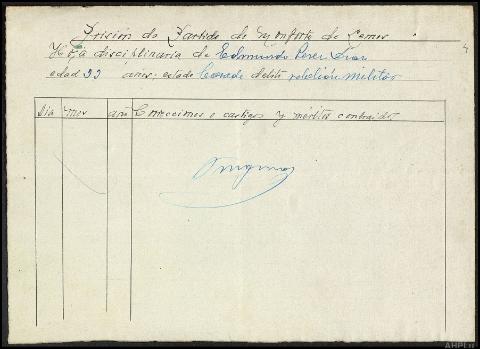 Prisión de Partido de Monforte de Lemos
Hoja disciplinaria de Edmundo Perez
edad 33 años: estado Casado delito rebelión militar
Dia mes año Correcciones o castigos y méritos contraidos
Ninguno
4
AHPLU